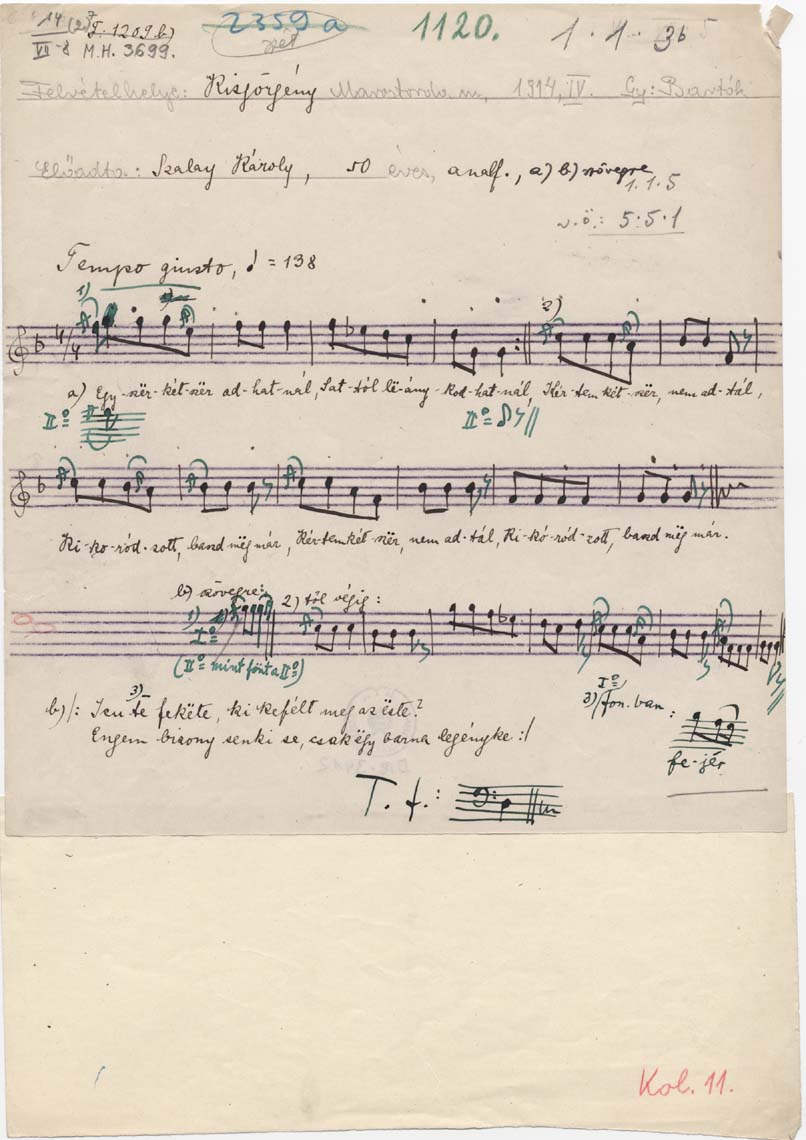 14 (2) F. 1209.b)
VII-8 M.H. 3699.
2359 a
1120.
1 . 1 . 3b
Felvétel helye: Kisgörgény Marostorda m, 1914, IV. Gy: Bartók
Előadta: Szalay Károly, 50 éves, analf., a) b) szövegre
1.1.5
v.ö.: 5.5.1
Tempo giusto, ♩ = 138
1)
2)
4/4
a) Egy-szër-két-szër ad-hat-nál, Sat-tól lë-ány-kod-hat-nál, Kér-tem két-szër, nem ad-tál,
IIº=
IIº=
Ki-ko-ród-zott, baszd mëg már, Kér-tem két-szër, nem ad-tál, Ki-kó-ród-zott, baszd mëg már.
b) szövegre: 2) től végig:
1)
Iº=
(IIº= mint fönt a IIº)
3)
b) /: Icu të feketе, ki kefélt meg az ëste?
Engem bizony senki se, csak ëgy barna legényke :/
Iº
3) fon. ban :
fe-jér
T. f. :
Kol. 11.